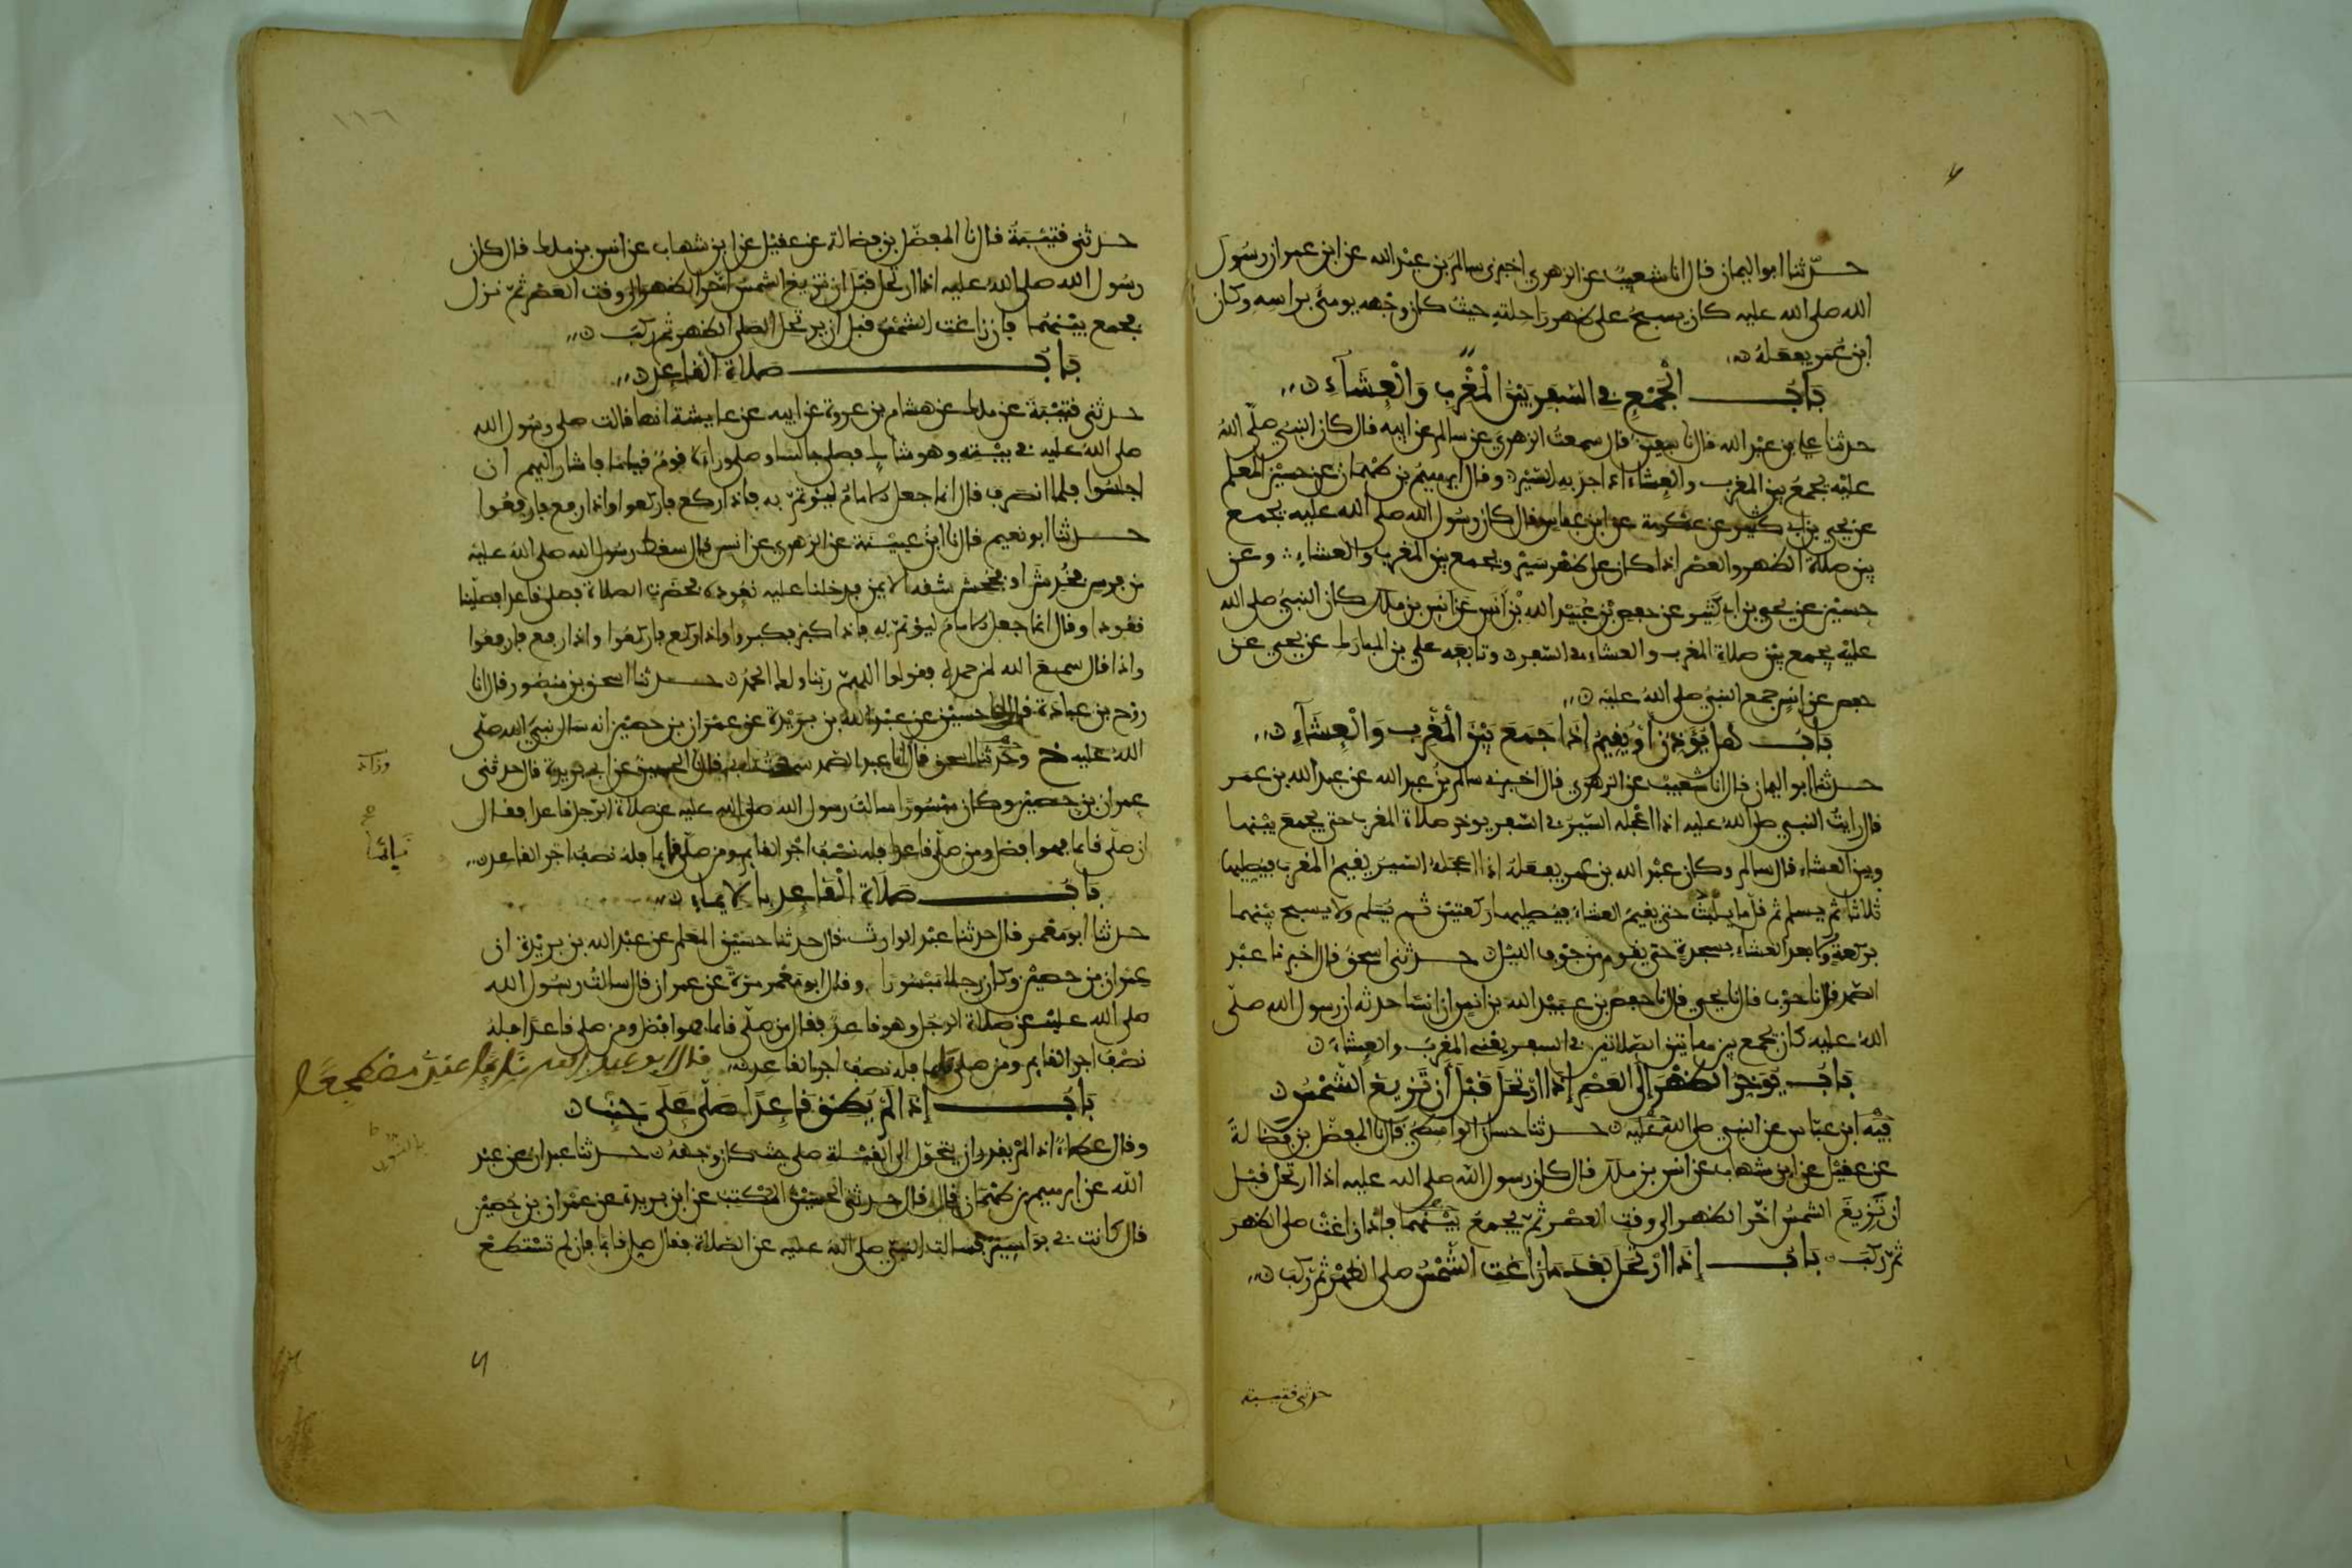 حدثنا ابو اليمان قال انا شعيب عن الزهري اخبرني سالم بن عبد الله عن ابن عمر ان رسول
الله صلى الله عليه كان يسبح على ظهر راحلته حيث كان وجهه يومئ براسه وكان
ابن عمر يفعله
باب الجمع في السفر بين المغرب والعشاء
حدثنا علي بن عبد الله قال نا سفين قال سمعت الزهري عن سالم عن ابيه قال كان النبي صلى الله
عليه يجمع بين المغرب والعشاء اذا جد به السير وقال ابرهيم بن طهمان عن حسين المعلم
عن يحيى بن ابي كثير عن عكرمة عن ابن عباس قال كان رسول الله صلى الله عليه يجمع
بين صلاة الظهر والعصر اذا كان على ظهر سير ويجمع بين المغرب والعشاء وعن
حسين عن يحيى بن ابي كثير عن حفص بن عبيد الله بن انس عن انس بن ملك كان النبي صلى الله
عليه يجمع بين صلاة المغرب والعشاء في السفر وتابعه علي بن المبارك عن يحيى عن
حفص عن انس جمع النبي صلى الله عليه
باب هل يؤذن او يقيم اذا جمع بين المغرب والعشاء
حدثنا ابو اليمان قال انا شعيب عن الزهري قال اخبرني سالم بن عبد الله عن عبد الله بن عمر
قال رايت النبي صلى الله عليه اذا اعجله السير في السفر يوخر صلاة المغرب حتى يجمع بينها
وبين العشاء قال سالم وكان عبد الله بن عمر يفعله اذا اعجله السير يقيم المغرب فيصليها
ثلاثا ثم يسلم ثم قلما يلبث حتى يقيم العشاء فيصليها ركعتين ثم يسلم ولا يسبح بينهما
بركعة ولا بعد العشاء بسجدة حتى يقوم من جوف الليل حدثني اسحق قال اخبرنا عبد
الصمد قال نا حرب قال نا يحيى قال نا حفص بن عبيد الله بن انس ان انسا حدثه ان رسول الله صلى
الله عليه كان يجمع بين هاتين الصلاتين في السفر يعني المغرب والعشاء
باب يوخر الظهر الى العصر اذا ارتحل قبل ان تزيغ الشمس
فيه ابن عباس عن النبي صلى الله عليه حدثنا حسان الواسطي قال نا المفضل بن فضالة
عن عقيل عن ابن شهاب عن انس بن ملك قال كان رسول الله صلى الله عليه اذا ارتحل قبل
ان تزيغ الشمس اخر الظهر الى وقت العصر ثم يجمع بينهما فاذا زاغت صلى الظهر
ثم ركب باب اذا ارتحل بعد ما زاغت الشمس صلى الظهر ثم ركب
حدثني قتيبة
١١٦
حدثني قتيبة قال نا المفضل بن فضالة عن عقيل عن ابن شهاب عن انس بن ملك قال كان
رسول الله صلى الله عليه اذا ارتحل قبل ان تزيغ الشمس اخر الظهر الى وقت العصر ثم نزل
فجمع بينهما فان زاغت الشمس قبل ان يرتحل صلى الظهر ثم ركب
باب صلاة القاعد
حدثني قتيبة عن ملك عن هشام بن عروة عن ابيه عن عايشة انها قالت صلى رسول الله
صلى الله عليه في بيته وهو شاك فصلى جالسا وصلى وراءه قوم قياما فاشار اليهم ان
اجلسوا فلما انصرف قال انما جعل الامام ليؤتم به فاذا ركع فاركعوا واذا رفع فارفعوا
حدثنا ابو نعيم قال نا ابن عيينة عن الزهري عن انس قال سقط رسول الله صلى الله عليه
من فرس فخدش او فجحش شقه الايمن فدخلنا عليه نعوده فحضرت الصلاة فصلى قاعدا فصلينا
قعودا وقال انما جعل الامام ليؤتم به فاذا كبر فكبروا واذا ركع فاركعوا واذا رفع فارفعوا
واذا قال سمع الله لمن حمده فقولوا اللهم ربنا ولك الحمد حدثنا اسحق بن منصور قال انا
روح بن عبادة قال انا حسين عن عبد الله بن بريدة عن عمران بن حصين انه سال نبي الله صلى
الله عليه ح وحدثنا اسحق قال انا عبد الصمد سمعت ابي قال نا الحسين عن ابن بريدة قال حدثني
عمران بن حصين وكان مبسورا سالت رسول الله صلى الله عليه عن صلاة الرجل قاعدا فقال
ان صلى قايما فهو افضل ومن صلى قاعدا فله نصف اجر القايم ومن صلى نايما فله نصف اجر القاعد
نائما
باب صلاة القاعد بالايماء
حدثنا ابو معمر قال حدثنا عبد الوارث قال حدثنا حسين المعلم عن عبد الله بن بريدة ان
عمران بن حصين وكان رجلا مبسورا وقال ابو معمر مرة عن عمران قال سالت رسول الله
صلى الله عليه عن صلاة الرجل وهو قاعد فقال من صلى قايما فهو افضل ومن صلى قاعدا فله
نصف اجر القايم ومن صلى نايما فله نصف اجر القاعد قال ابو عبد الله نايما عندي مضطجعا
باب اذا لم يطق قاعدا صلى على جنب
وقال عطاء اذا لم يقدر ان يتحول الى القبلة صلى حيث كان وجهه حدثنا عبدان عن عبد
الله عن ابرهيم بن طهمان قال حدثني الحسين المكتب عن ابن بريدة عن عمران بن حصين
قال كانت بي بواسير فسالت النبي صلى الله عليه عن الصلاة فقال صل قايما فان لم تستطع